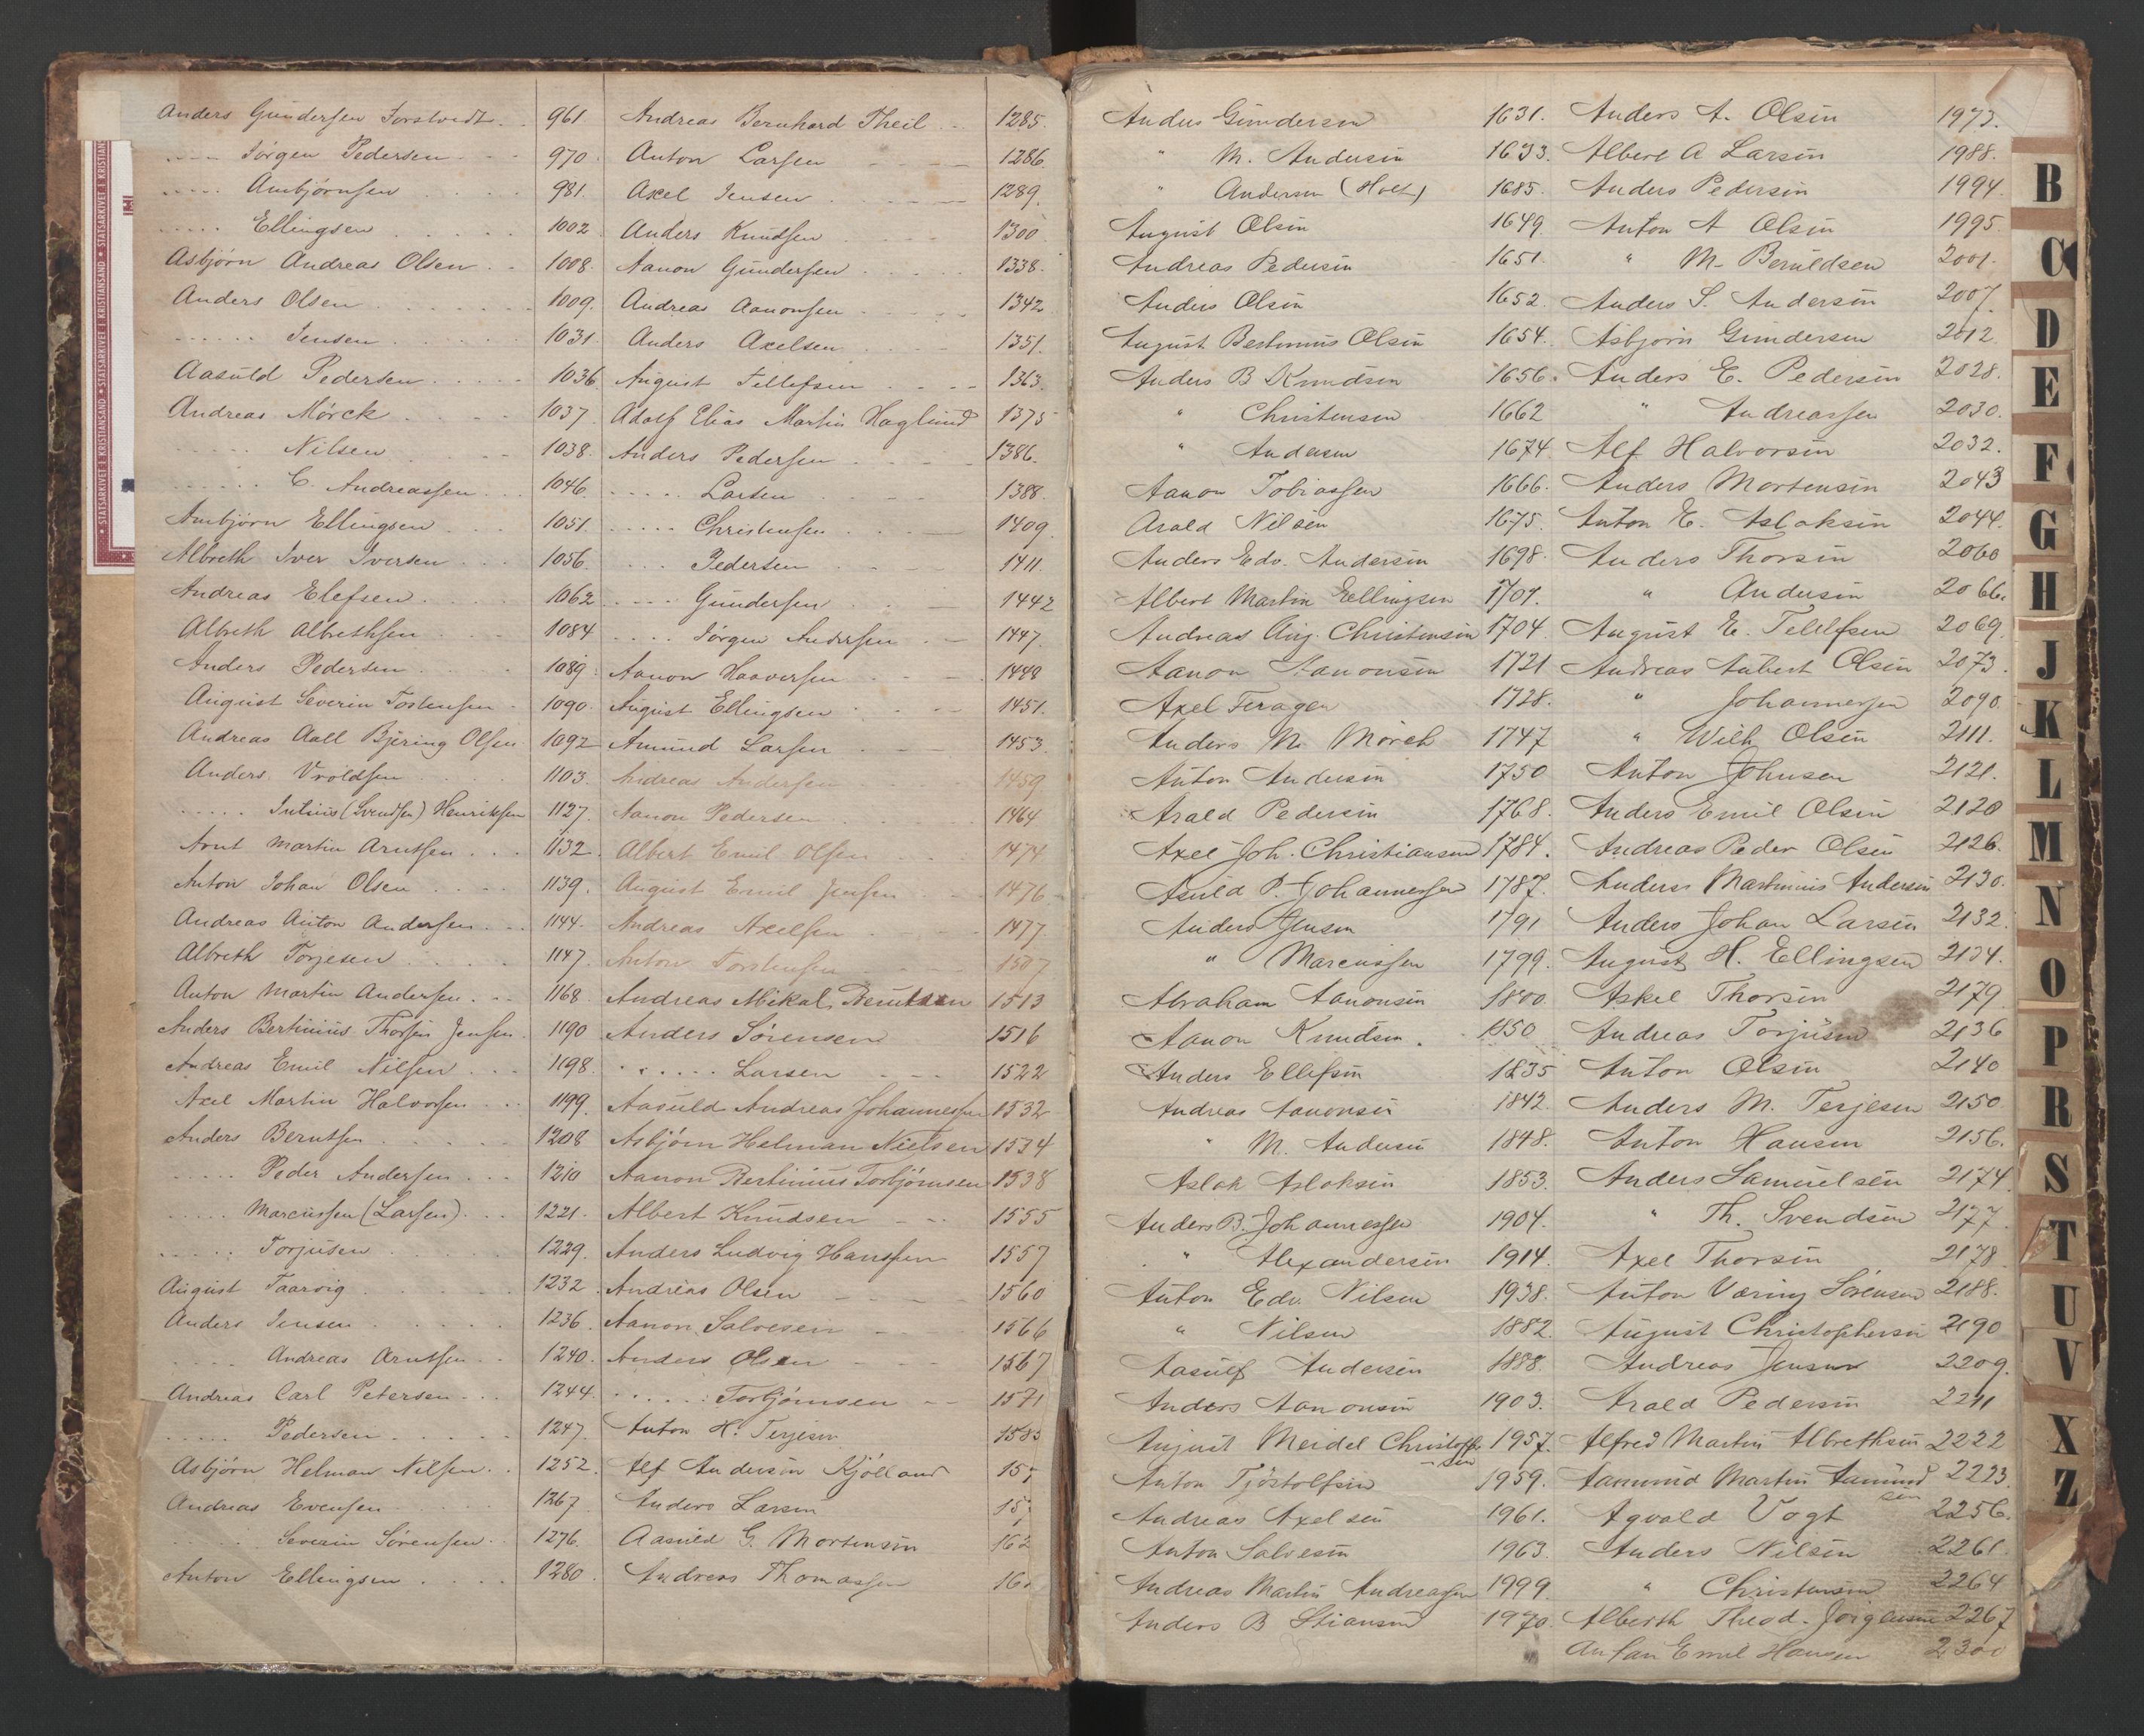 Anders Gundersen Torstvedt 961
Jörgen Pedersen 970
Ambjörnsen 981.
Ellingsen 1002
Asbjörn Andreas Olsen 1008.
Anders Olsen 1009.
Jensen 1031
Aasuld Pedersen 1036
Andreas Mörck 1037
Nilsen 1038.
C. Andreassen 1046.
Ambjörn Ellingsen 1051.
Albreth Iver Iversen 1056.
Andreas Elefsen 1062
Albreth Albrethsen 1084
Anders Pedersen 1089.
August Severin Tostensen 1090.
Andreas Aall Bjering Olsen 1092
Anders Vroldsen 1103.
Julius (Svendsen) Henriksen 1127.
Arnt Martin Arntsen 1132.
Anton Johan Olsen 1139.
Andreas Anton Andersen 1144.
Albreth Torjesen 1147.
Anton Martin Andersen 1168.
Anders Bertinius Thorsen Jensen 1190
Andreas Emil Nilsen 1198.
Axel Martin Halvorsen 1199.
Anders Berntsen 1208
Peder Andersen 1210
Marcussen (Larsen) 1221.
Torjusen 1229.
August Taarvig 1232
Anders Jensen 1236.
Andreas Arntsen 1240.
Andreas Carl Petersen 1244.
Pedersen 1247.
Asbjörn Helman Nilsen 1252.
Andreas Evensen 1267.
Severin Sörensen 1276.
Anton Ellingsen 1280.
Andreas Bernhard Theil 1285.
Anton Larsen 1286.
Axel Jensen 1289.
Anders Knudsen 1300
Aanon Gundersen 1338.
Andreas Aanonsen 1342
Anders Axelsen 1351.
August Tellefsen 1363.
Adolf Elias Martin Haglund 1375
Anders Pedersen 1386.
Larsen 1388.
Christensen 1409
Pedersen 1411
Gundersen 1442
Jörgen Andersen 1447.
Aanon Haaversen 1448
August Ellingsen 1451.
Amund Larsen 1453.
Andreas Andersen 1459
Aanon Pedersen 1464
Albert Emil Olsen 1474
August Emil Jensen 1476
Andreas Axelsen 1477
Anton Torstensen 1507
Andreas Mikal Berntsen 1513
Anders Sörensen 1516
Larsen 1522
Aasuld Andreas Johannessen 1532
Asbjörn Helman Nielsen 1534
Aanon Bertinius Torbjörnsen 1538
Albert Knudsen 1555
Anders Ludvig Hanssen 1557
Andreas Olsen 1560
Aanon Salvesen 1566
Anders Olsen 1567
Torbjörnsen 1571
Anton H. Terjesen 1585
Alf Andersen Kjölland 15
Anders Larsen 15
Aasuld G. Mortensen 162
Andreas Thomassen 16
Anders Gundersen 1631.
" M. Andersen 1633.
" Andersen (Holt) 1685.
August Olsen 1649.
Andreas Pedersen 1651.
Anders Olsen 1652.
August Bertinius Olsen 1654.
Anders B Knudsen 1656.
" Christensen 1662
" Andersen 1674
Aanon Tobiassen 1666.
Arald Nilsen 1675.
Anders Edv. Andersen 1698.
Albert Martin Ellingsen 1701.
Andreas Aug. Christensen 1704.
Aanon Aanonsen 1721
Axel Feragen 1728.
Anders N. Mörch 1747
Anton Andersen 1750
Arald Pedersen 1768.
Axel Joh. Christiansen 1784.
Asuld P. Johannessen 1787.
Anders Jensen 1791
" Marcussen 1799.
Abraham Aanonsen 1800.
Aanon Knudsen 1850
Anders Ellefsen 1835
Andreas Aanonsen 1842.
" M. Andersen 1848.
Aslak Aslaksen 1853.
Anders B. Johannessen 1904.
" Alexandersen 1914.
Anton Edv. Nilsen 1938.
" Nilsen 1882.
Aasulf Andersen 1888.
Anders Aanonsen 1903.
August Meidel Christoffer- 1957.
-sen
Anton Tjöstolfsen 1959.
Andreas Axelsen 1961.
Anton Salvesen 1963.
Andreas Martin Andreassen 1999.
Anders B Stiansen 1970.
Anders A. Olsen 1973.
Albert A Larsen 1988.
Anders Pedersen 1994.
Anton A Olsen 1995.
" M. Beruldsen 2001.
Anders S. Andersen 2007.
Asbjörn Gundersen 2012
Anders E. Pedersen 2028.
" Andreassen 2030.
Alf Halvorsen 2032.
Anders Mortensen 2043
Anton E. Aslaksen 2044.
Anders Thorsen 2060
" Andersen 2066.
August E. Tellefsen 2069.
Andreas Aubert Olsen 2073.
" Johannessen 2090.
" Wilh. Olsen 2111.
Anton Johnsen 2121.
Anders Emil Olsen 2120
Andreas Peder Olsen 2126.
Anders Martinius Andersen 2130.
Anders Johan Larsen 2132.
August H. Ellingsen 2134.
Askel Thorsen 2179.
Andreas Torjusen 2136
Anton Olsen 2140
Anders M. Terjesen 2150.
Anton Hansen 2156.
Anders Samuelsen 2174.
" Th. Svendsen 2177.
Axel Thorsen 2178.
Anton Væring Sörensen 2188.
August Christophersen 2190
Andreas Jensen 2209.
Arald Pedersen 2211
Alfred Martin Albrethsen 2222
Aamund Martin Aamund 2223.
sen
Agvald Vogt 2256.
Anders Nilsen 2261.
" Christensen 2264
Alberth Theod. Jörgensen 2267
Emil Hansen 2300
B
C
D
E
F
G
H
J
K
L
M
N
O
P
R
S
T
U
V
X
Z
STATSARKIVET I KRISTIANSAND • STATSARKIVET I KRISTIANSAND • STATSARKIVET I KRISTIANSAND